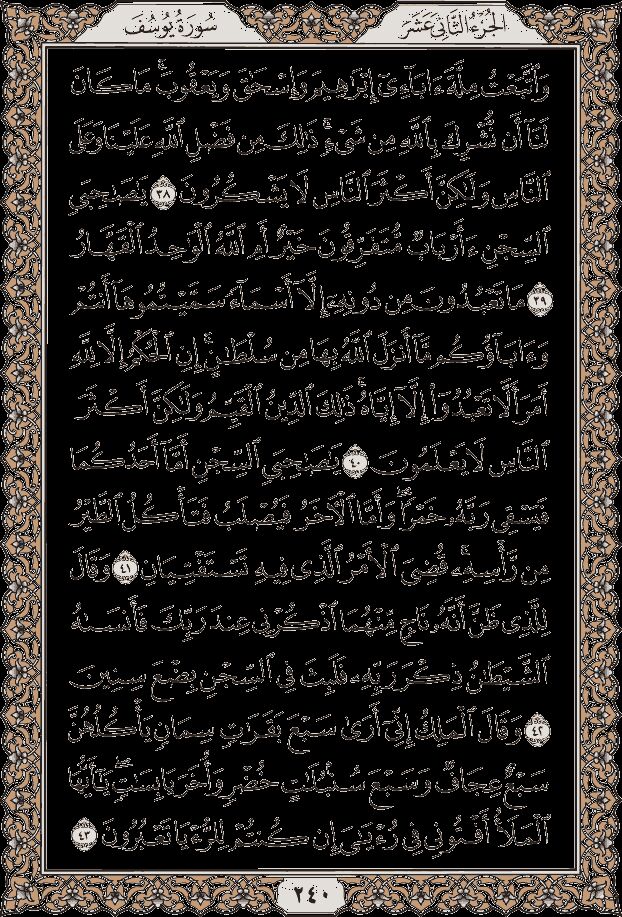 الجزء الثاني عشر
سورة يوسف
وَٱتَّبَعۡتُ مِلَّةَ ءَابَآءِيٓ إِبۡرَٰهِيمَ وَإِسۡحَٰقَ وَيَعۡقُوبَۚ مَا كَانَ
لَنَآ أَن نُّشۡرِكَ بِٱللَّهِ مِن شَيۡءٖۚ ذَٰلِكَ مِن فَضۡلِ ٱللَّهِ عَلَيۡنَا وَعَلَى
ٱلنَّاسِ وَلَٰكِنَّ أَكۡثَرَ ٱلنَّاسِ لَا يَشۡكُرُونَ ٣٨ يَٰصَٰحِبَيِ
ٱلسِّجۡنِ ءَأَرۡبَابٞ مُّتَفَرِّقُونَ خَيۡرٌ أَمِ ٱللَّهُ ٱلۡوَٰحِدُ ٱلۡقَهَّارُ
٣٩ مَا تَعۡبُدُونَ مِن دُونِهِۦٓ إِلَّآ أَسۡمَآءٗ سَمَّيۡتُمُوهَآ أَنتُمۡ
وَءَابَآؤُكُم مَّآ أَنزَلَ ٱللَّهُ بِهَا مِن سُلۡطَٰنٍۚ إِنِ ٱلۡحُكۡمُ إِلَّا لِلَّهِ
أَمَرَ أَلَّا تَعۡبُدُوٓاْ إِلَّآ إِيَّاهُۚ ذَٰلِكَ ٱلدِّينُ ٱلۡقَيِّمُ وَلَٰكِنَّ أَكۡثَرَ
ٱلنَّاسِ لَا يَعۡلَمُونَ ٤٠ يَٰصَٰحِبَيِ ٱلسِّجۡنِ أَمَّآ أَحَدُكُمَا
فَيَسۡقِي رَبَّهُۥ خَمۡرٗاۖ وَأَمَّا ٱلۡأٓخَرُ فَيُصۡلَبُ فَتَأۡكُلُ ٱلطَّيۡرُ
مِن رَّأۡسِهِۦۚ قُضِيَ ٱلۡأَمۡرُ ٱلَّذِي فِيهِ تَسۡتَفۡتِيَانِ ٤١ وَقَالَ
لِلَّذِي ظَنَّ أَنَّهُۥ نَاجٖ مِّنۡهُمَا ٱذۡكُرۡنِي عِندَ رَبِّكَ فَأَنسَىٰهُ
ٱلشَّيۡطَٰنُ ذِكۡرَ رَبِّهِۦ فَلَبِثَ فِي ٱلسِّجۡنِ بِضۡعَ سِنِينَ
٤٢ وَقَالَ ٱلۡمَلِكُ إِنِّيٓ أَرَىٰ سَبۡعَ بَقَرَٰتٖ سِمَانٖ يَأۡكُلُهُنَّ
سَبۡعٌ عِجَافٞ وَسَبۡعَ سُنۢبُلَٰتٍ خُضۡرٖ وَأُخَرَ يَابِسَٰتٖۖ يَٰٓأَيُّهَا
ٱلۡمَلَأُ أَفۡتُونِي فِي رُءۡيَٰيَ إِن كُنتُمۡ لِلرُّءۡيَا تَعۡبُرُونَ ٤٣
٢٤٠